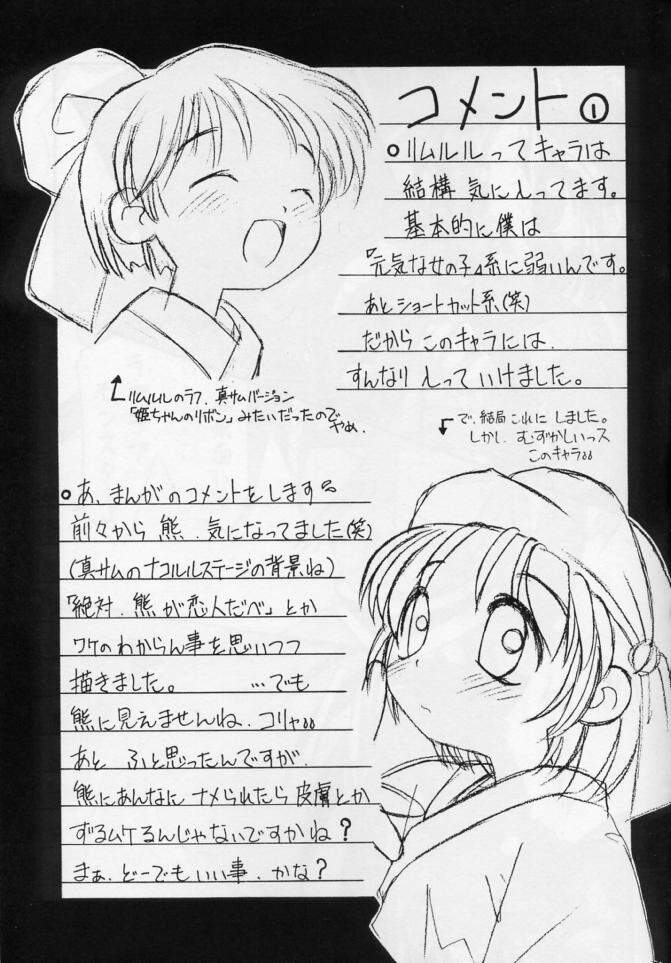 コメント①
○リムルルってキャラは
結構 気に入ってます。
基本的に僕は
『元気な女の子』系に弱いんです。
あと ショートカット系(笑)
だから このキャラには
すんなり 入って いけました。
リムルルのラフ. 真サムバージョン
「姫ちゃんのリボン」みたいだったので
やめ.
で、結局 これに しました。
しかし. むずかしいっス
このキャラ。。
○あ、まんがのコメントをします。
前々から 熊、気になってました(笑)
(真サムのナコルルステージの背景ね)
「絶対、熊が恋人だべ」とか
ワケのわからん事を思いつつ
描きました。 …でも
熊に見えませんね、コリャ。。
あと ふと思ったんですが、
熊にあんなに ナメられたら 皮膚とか
ずるムケるんじゃないですかね?
まぁ、どーでもいい事、かな?